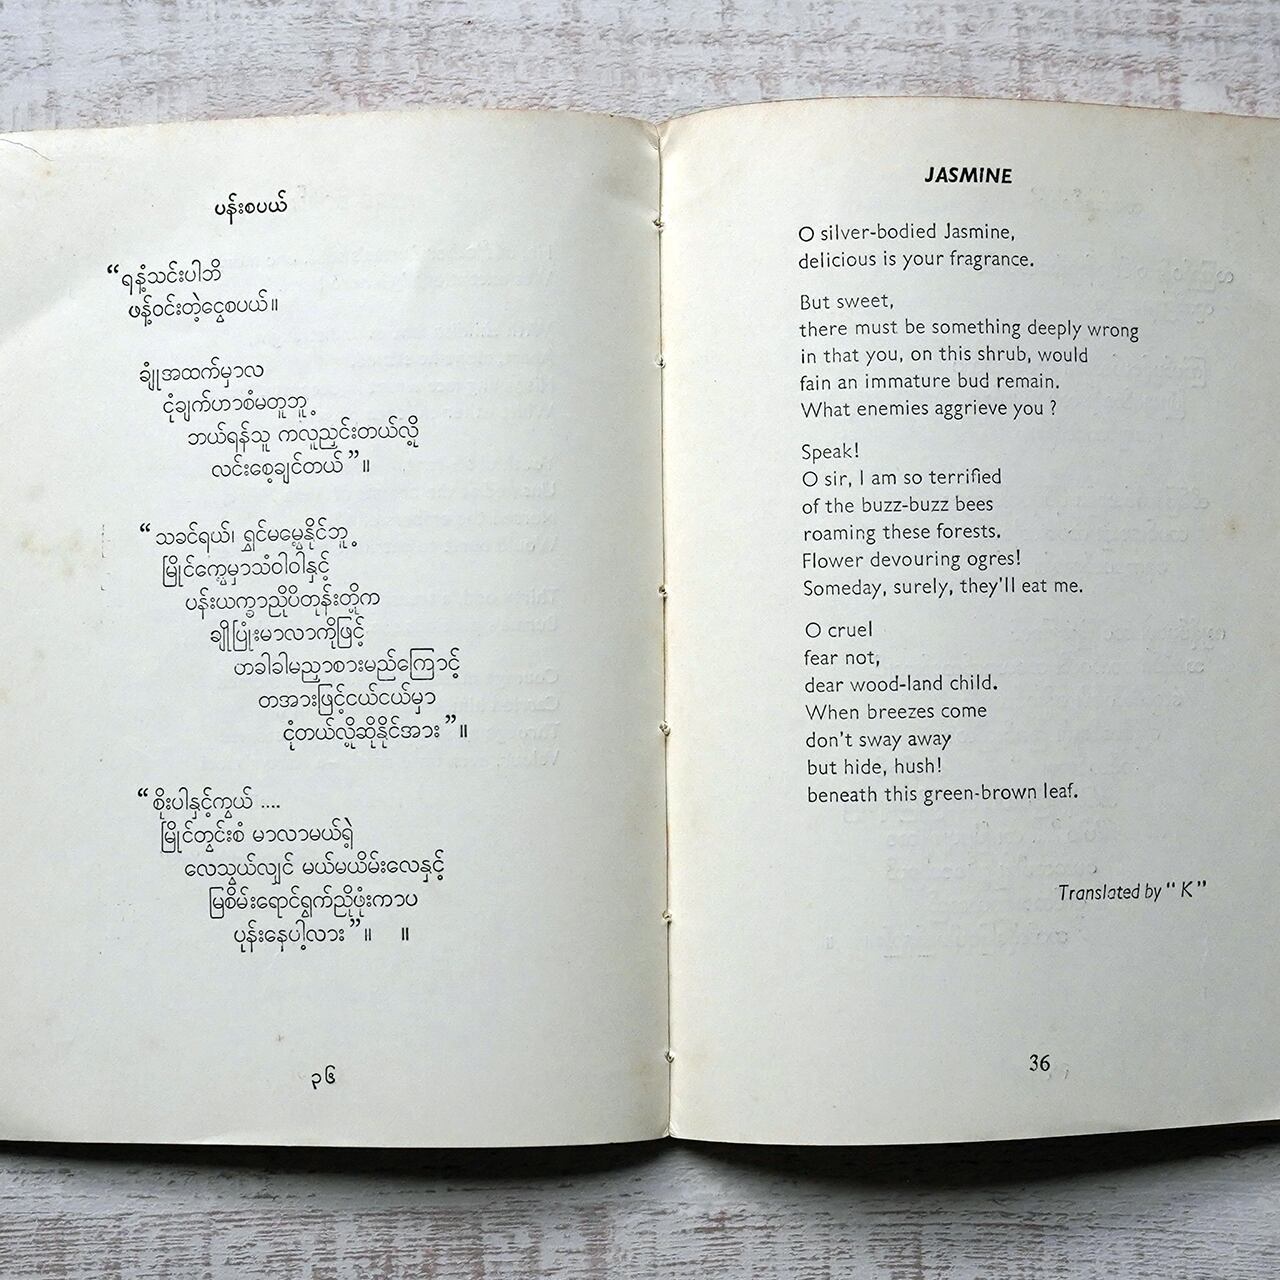 ပန်းစပယ်
“ ရနံ့သင်းပါဘိ
ဖန့်ဝင်းတဲ့ငွေစပယ်။
ချုံအထက်မှာလ
ငုံချက်ဟာစံမတူဘူ့
ဘယ်ရန်သူ ကလူညှင်းတယ်လို့
လင်းစေ့ချင်တယ် ”။
“ သခင်ရယ်၊ ရှင်မမေ့နိုင်ဘူ့
မြိုင်ကွေ့မှာသံဝါဝါနှင့်
ပန်းယက္ခာညိုပိတုန်းတို့က
ချိုပြုံးမာလာကိုဖြင့်
ဟခါခါမညှာစားမည်ကြောင့်
တအားဖြင့်ငယ်ငယ်မှာ
ငုံတယ်လို့ဆိုနိုင်အား ”။
“ စိုးပါနှင့်ကွယ် ....
မြိုင်တွင်းစံ မာလာမယ်ရဲ့
လေသွယ်လျှင် မယ်မယိမ်းလေနှင့်
မြစိမ်းရောင်ရွက်ညိုဖုံးကာပ
ပုန်းနေပါ့လား ”။ ။
၃၆
JASMINE
O silver-bodied Jasmine,
delicious is your fragrance.
But sweet,
there must be something deeply wrong
in that you, on this shrub, would
fain an immature bud remain.
What enemies aggrieve you ?
Speak!
O sir, I am so terrified
of the buzz-buzz bees
roaming these forests.
Flower devouring ogres!
Someday, surely, they'll eat me.
O cruel
fear not,
dear wood-land child.
When breezes come
don't sway away
but hide, hush!
beneath this green-brown leaf.
Translated by “ K ”
36